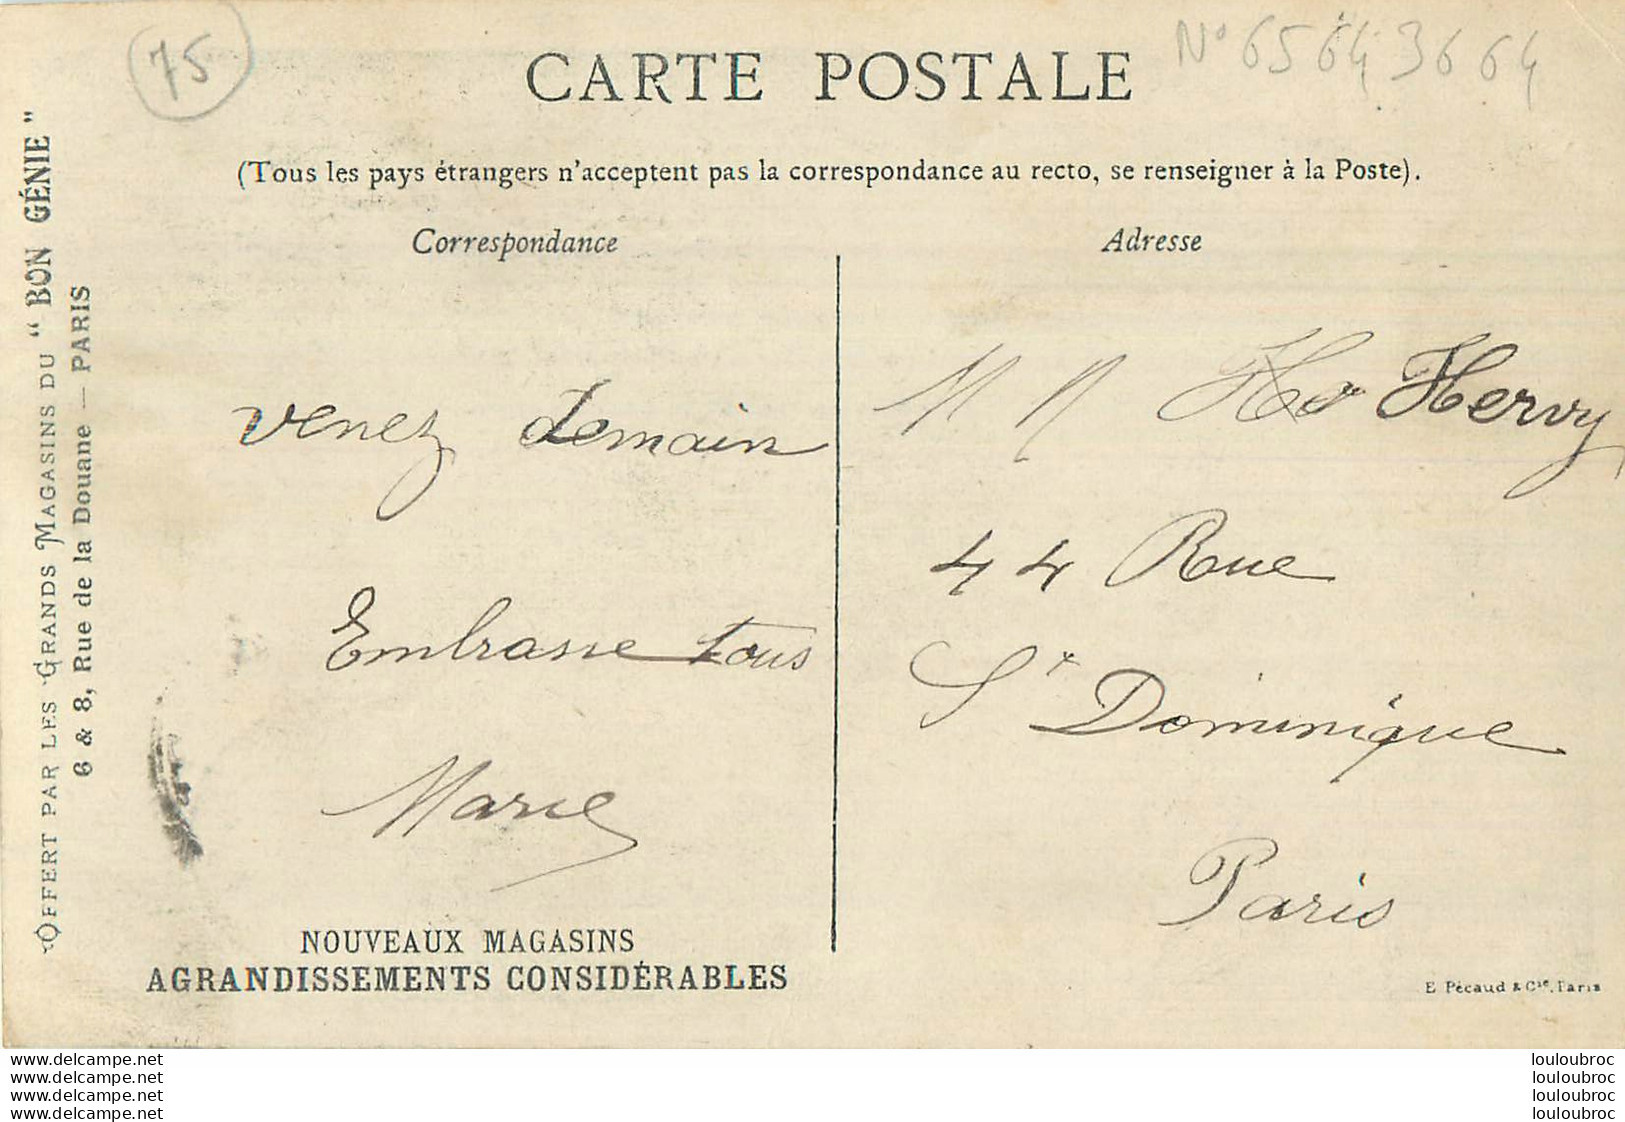 75
N° 656436 64
CARTE POSTALE
(Tous les pays étrangers n'acceptent pas la correspondance au recto, se renseigner à la Poste).
OFFERT PAR LES GRANDS MAGASINS DU "BON GÉNIE"
6 & 8, Rue de la Douane — PARIS
Correspondance
venez demain
Embrasse tous
Marie
NOUVEAUX MAGASINS
AGRANDISSEMENTS CONSIDÉRABLES
Adresse
M M Hervy
44 Rue
St Dominique
Paris
E. Pécaud & Cie, Paris
www.delcampe.net
www.delcampe.net
www.delcampe.net
www.delcampe.net
louloubroc
louloubroc
louloubroc
louloubroc